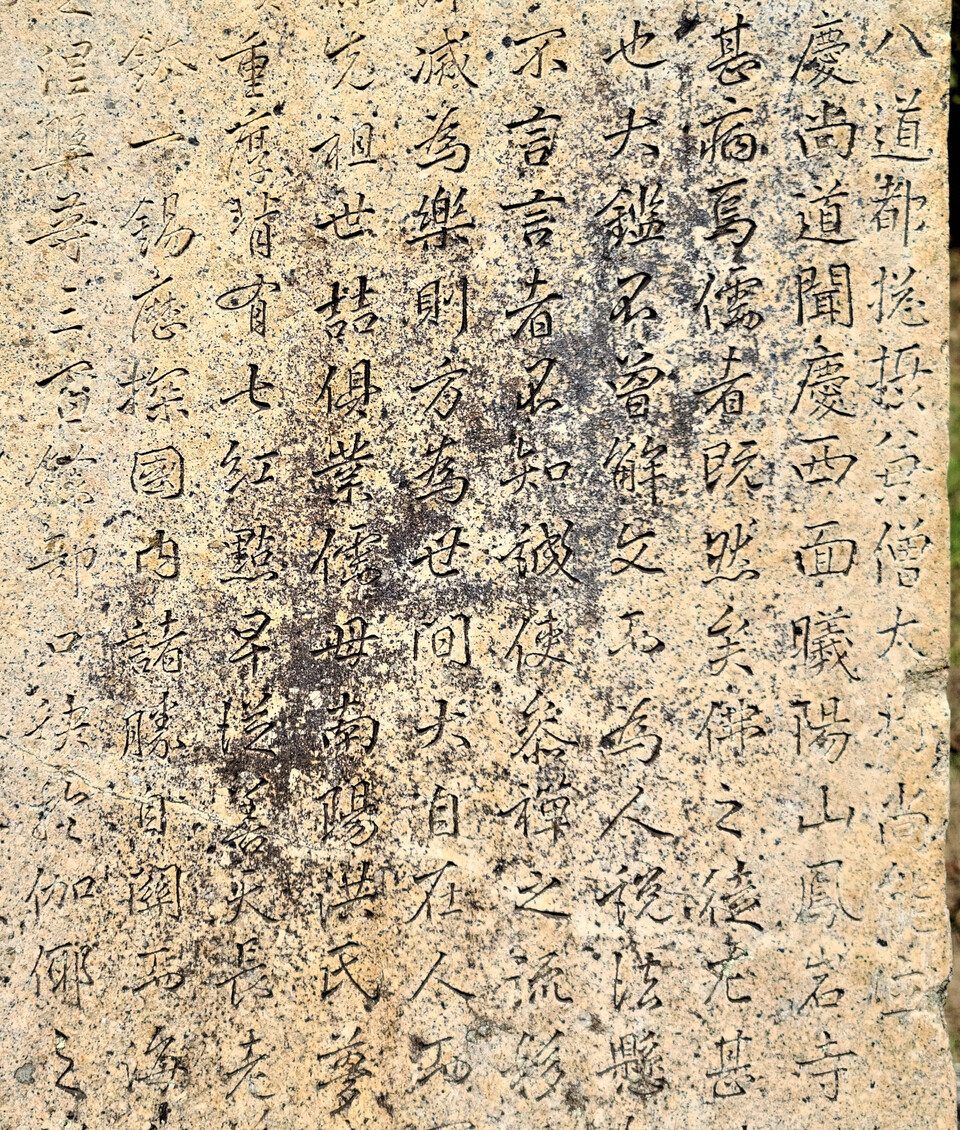 八道都摠摂兼僧大將尚能
慶尚道聞慶西面曦陽山鳳岩寺
甚病焉儒者既然矣佛之徒尤甚
也大鑑不曾解文而為人說法懸
不言言者不知誠使叅禪之流
滅為樂則方為世間大自在人而
先祖世喆俱業儒母南陽洪氏夢
重厚背有七紅點早從善天長老
一錫歷探國內諸勝自關而海
涅槃等三百餘部口訣於伽倻之